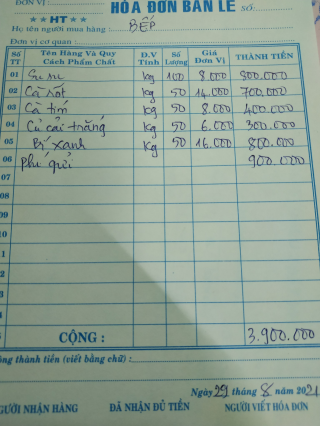 ĐƠN VỊ :
HÓA ĐƠN BÁN LẺ SỐ:
★★ HT ★★
Họ tên người mua hàng : BẾP
Đơn vị cơ quan :
Số TT Tên Hàng Và Quy Cách Phẩm Chất Đ.V Tính Số Lượng Giá Đơn Vị THÀNH TIỀN
01 Su su kg 100 8.000 800.000
02 Cà rốt kg 50 14.000 700.000
03 Cà tím kg 50 8.000 400.000
04 Củ cải trắng kg 50 6.000 300.000
05 Bí xanh kg 50 16.000 800.000
06 Phí gửi 900.000
07
08
09
10
11
12
CỘNG : 3.900.000
ộng thành tiền (viết bằng chữ) :
Ngày 29 tháng 8 năm 2021
GƯỜI NHẬN HÀNG ĐÃ NHẬN ĐỦ TIỀN NGƯỜI VIẾT HÓA ĐƠN